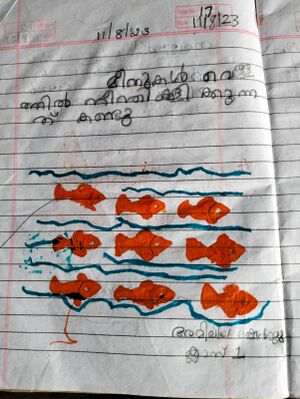 17
11/8/23
11/8/23
മീനുകൾ വെള്ള
ത്തിൽ നീന്തി കളിക്കുന്ന
ത് കണ്ടു
ക്ലാസ് 1